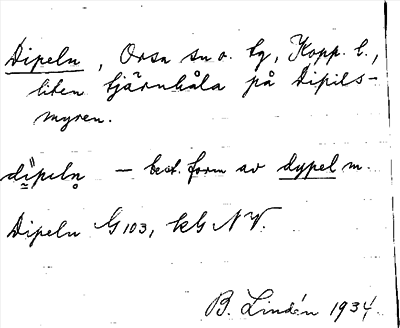 Dipeln, Orsa sn o. tg, Kopp. l.,
liten tjärnhåla på Dipils-
myren.
dipeln – best. form av dypel m.
Dipeln G 103, kG NV.
B. Lindén 1934.